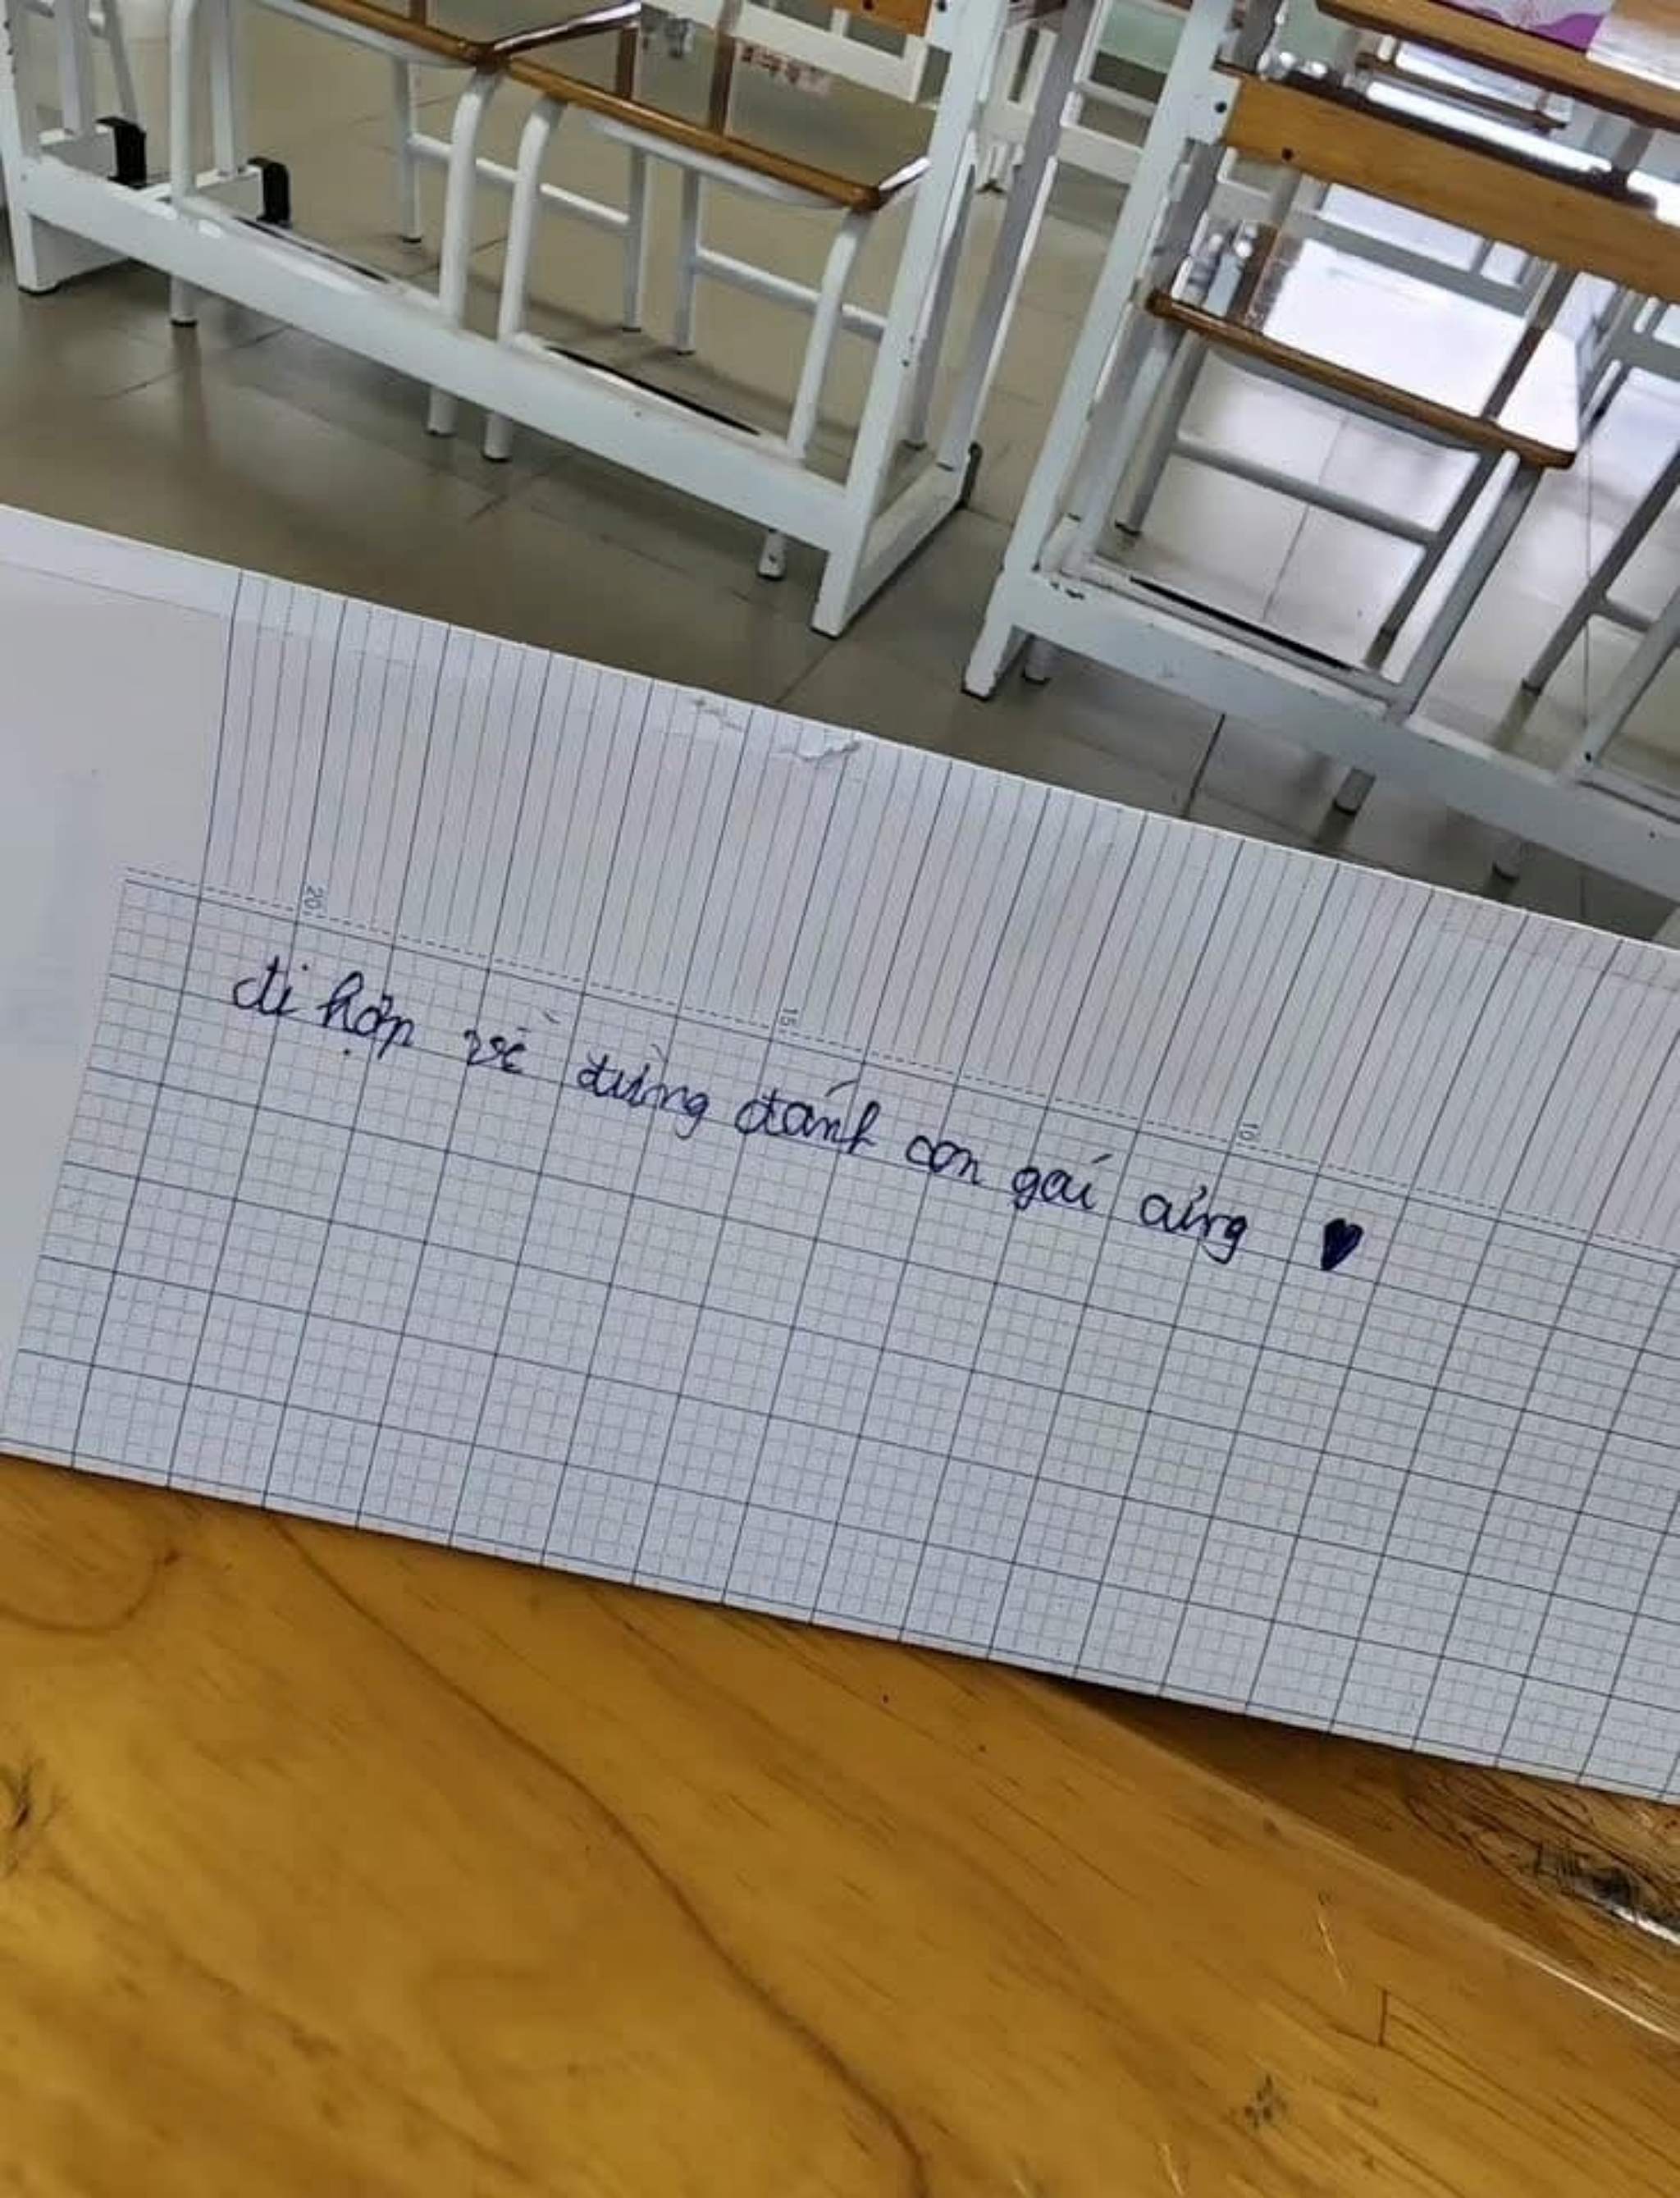 đi họp về đừng đánh con gái cưng ♥
20
15
10